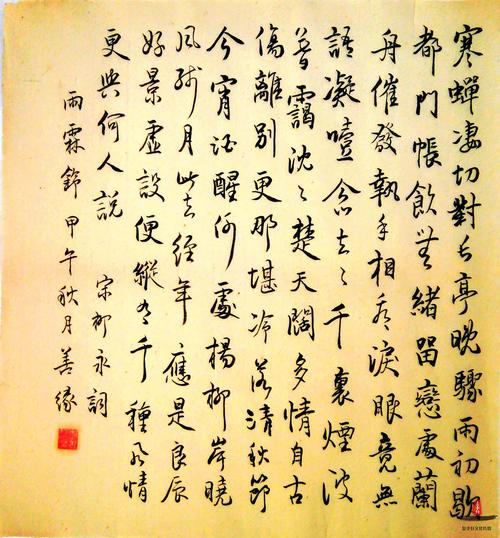 寒蟬凄切對長亭晚驟雨初歇
都門帳飲無緒留戀處蘭
舟催發執手相看淚眼竟無
語凝噎念去〻千裏煙波
暮靄沈〻楚天闊多情自古
傷離別更那堪冷落清秋節
今宵酒醒何處楊柳岸曉
風殘月此去經年應是良辰
好景虛設便縱有千種風情
更與何人說 宋柳永詞
雨霖鈴甲午秋月善緣